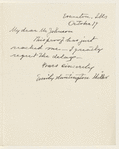 Evanston, Ills
October 17
My dear Mr Johnson
This proof has just
reached me. I greatly
regret the delay.
Yours sincerely
Emily Huntington Miller